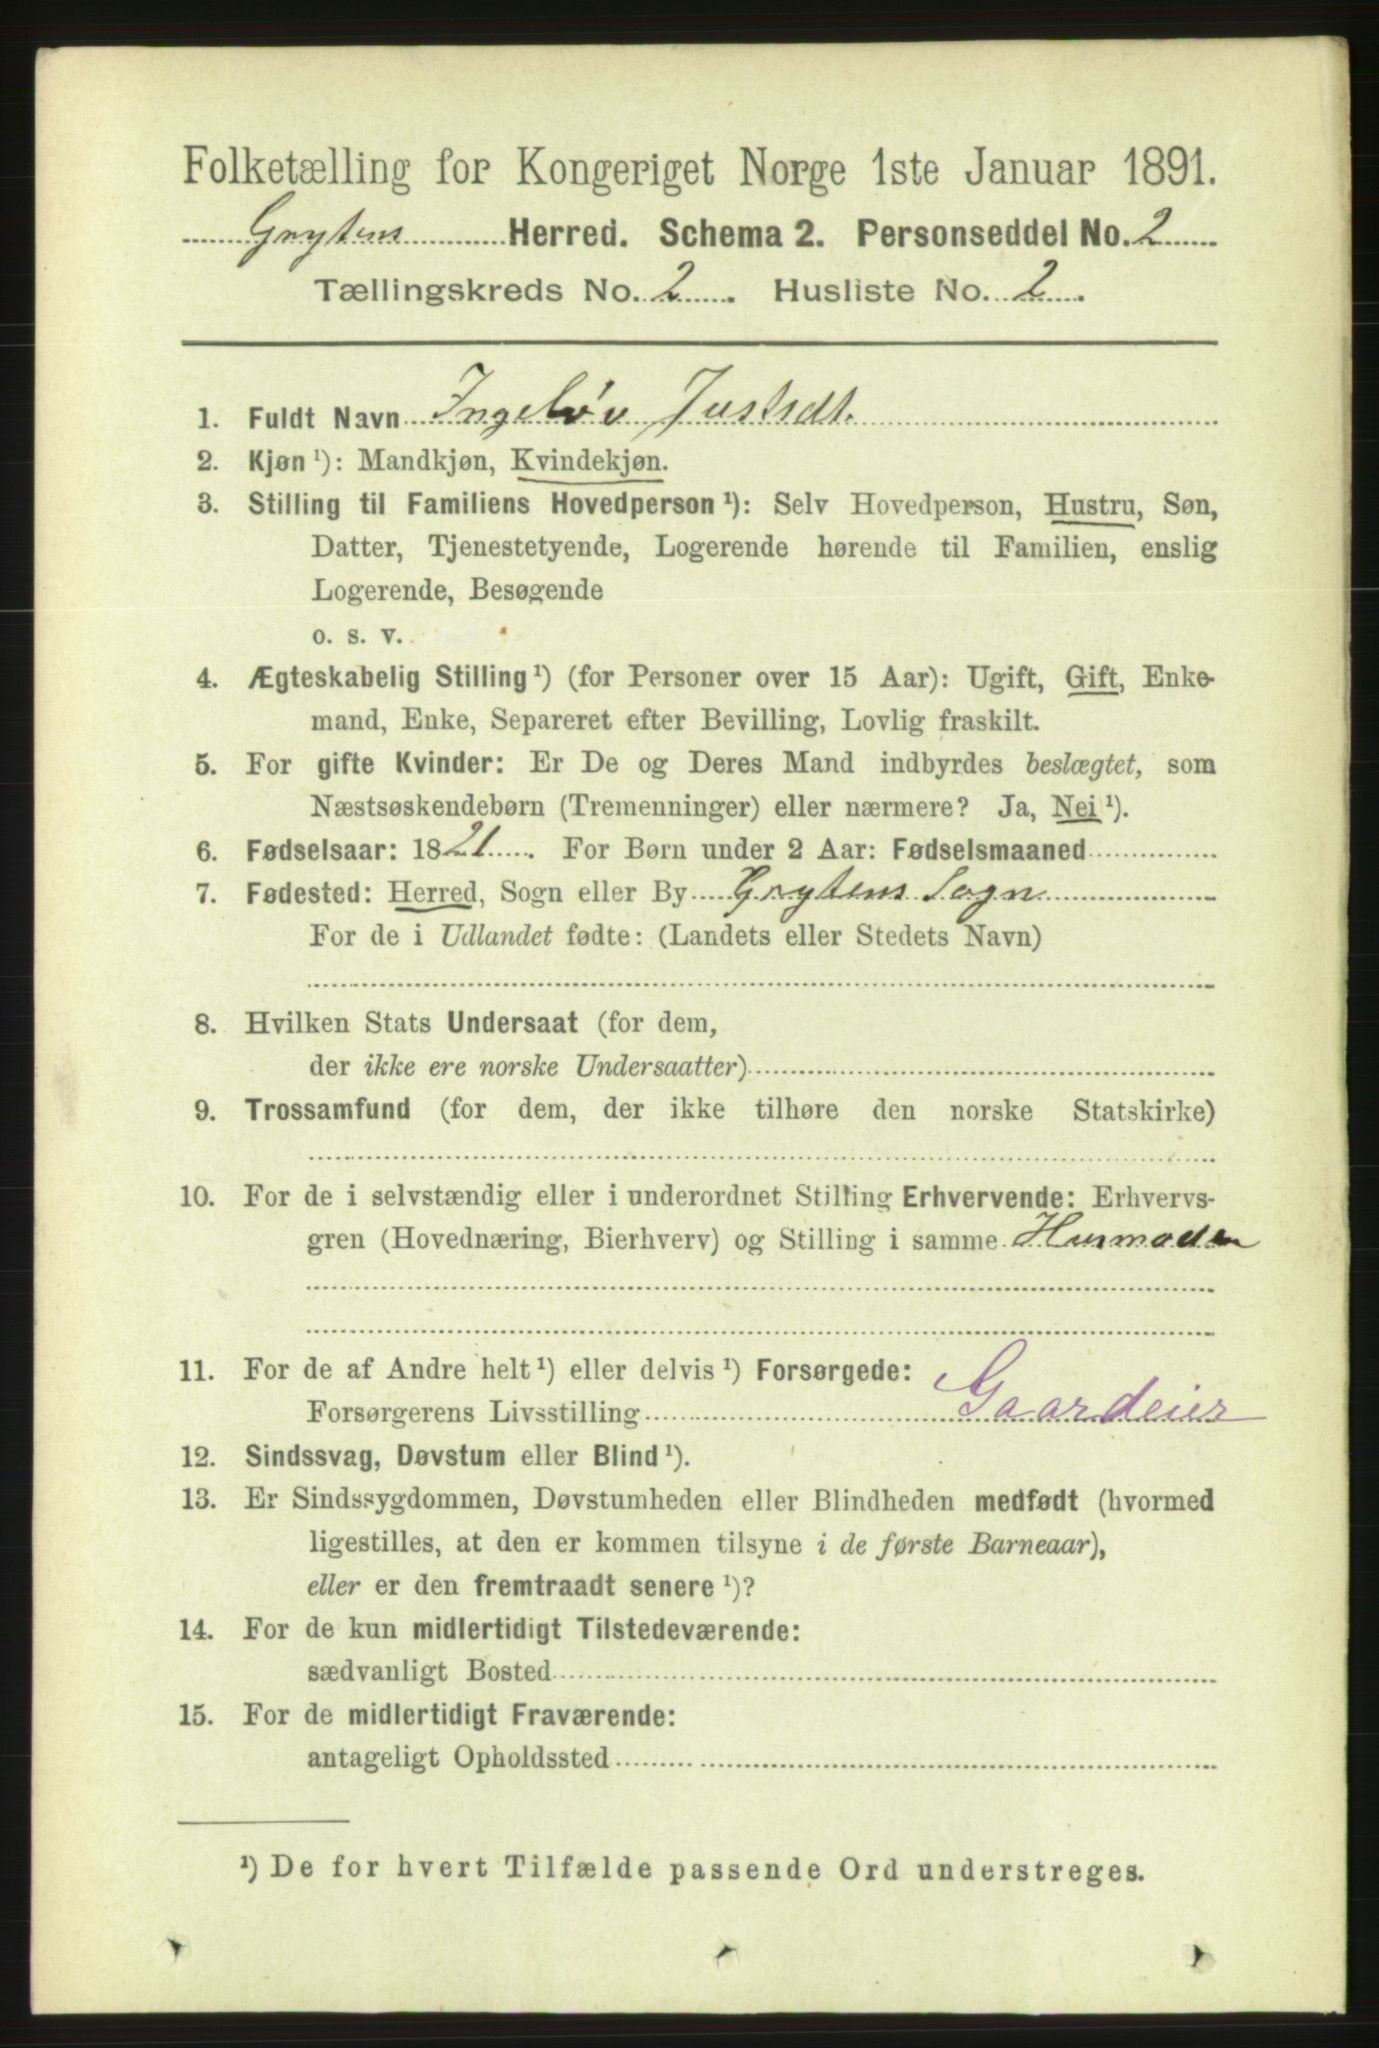 Folketælling for Kongeriget Norge 1ste Januar 1891.
Grytens Herred. Schema 2. Personseddel No. 2
Tællingskreds No. 2. Husliste No. 2.
1. Fuldt Navn Ingeløv Justsdt.
2. Kjøn ¹): Mandkjøn, Kvindekjøn.
3. Stilling til Familiens Hovedperson ¹): Selv Hovedperson, Hustru, Søn,
Datter, Tjenestetyende, Logerende hørende til Familien, enslig
Logerende, Besøgende
o. s. v.
4. Ægteskabelig Stilling ¹) (for Personer over 15 Aar): Ugift, Gift, Enke-
mand, Enke, Separeret efter Bevilling, Lovlig fraskilt.
5. For gifte Kvinder: Er De og Deres Mand indbyrdes beslægtet, som
Næstsøskendebørn (Tremenninger) eller nærmere? Ja, Nei ¹).
6. Fødselsaar: 1821. For Børn under 2 Aar: Fødselsmaaned
7. Fødested: Herred, Sogn eller By Grytens Sogn
For de i Udlandet fødte: (Landets eller Stedets Navn)
8. Hvilken Stats Undersaat (for dem,
der ikke ere norske Undersaatter)
9. Trossamfund (for dem, der ikke tilhøre den norske Statskirke)
10. For de i selvstændig eller i underordnet Stilling Erhvervende: Erhvervs-
gren (Hovednæring, Bierhverv) og Stilling i samme Husmoder
11. For de af Andre helt ¹) eller delvis ¹) Forsørgede:
Forsørgerens Livsstilling Gaardeier
12. Sindssvag, Døvstum eller Blind ¹).
13. Er Sindssygdommen, Døvstumheden eller Blindheden medfødt (hvormed
ligestilles, at den er kommen tilsyne i de første Barneaar),
eller er den fremtraadt senere ¹)?
14. For de kun midlertidigt Tilstedeværende:
sædvanligt Bosted
15. For de midlertidigt Fraværende:
antageligt Opholdssted
¹) De for hvert Tilfælde passende Ord understreges.